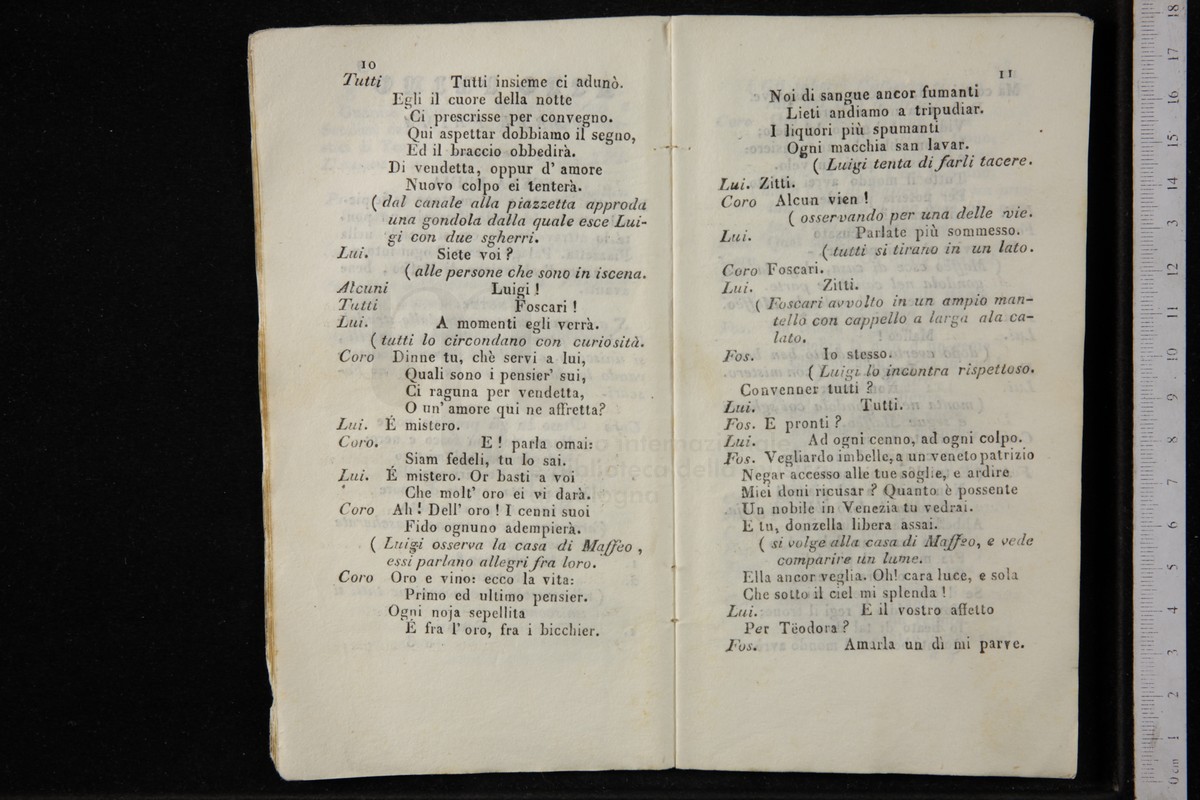 10
Tutti Tutti insieme ci adunò.
Egli il cuore della notte
Ci prescrisse per convegno.
Qui aspettar dobbiamo il segno,
Ed il braccio obbedirà.
Di vendetta, oppur d' amore
Nuovo colpo ei tenterà.
( dal canale alla piazzetta approda
una gondola dalla quale esce Lui-
gi con due sgherri.
Lui. Siete voi ?
( alle persone che sono in iscena.
Alcuni Luigi !
Tutti Foscari !
Lui. A momenti egli verrà.
( tutti lo circondano con curiosità.
Coro Dinne tu, chè servi a lui,
Quali sono i pensier' sui,
Ci raguna per vendetta,
O un' amore qui ne affretta?
Lui. É mistero.
Coro. E ! parla omai:
Siam fedeli, tu lo sai.
Lui. É mistero. Or basti a voi
Che molt' oro ei vi darà.
Coro Ah ! Dell' oro ! I cenni suoi
Fido ognuno adempierà.
( Luigi osserva la casa di Maffèo ,
essi parlano allegri fra loro.
Coro Oro e vino: ecco la vita:
Primo ed ultimo pensier.
Ogni noja sepellita
É fra l' oro, fra i bicchier.
11
Noi di sangue ancor fumanti
Lieti andiamo a tripudiar.
I liquori più spumanti
Ogni macchia san lavar.
( Luigi tenta di farli tacere.
Lui. Zitti.
Coro Alcun vien !
( osservando per una delle vie.
Lui. Parlate più sommesso.
( tutti si tirano in un lato.
Coro Foscari.
Lui. Zitti.
( Foscari avvolto in un ampio man-
tello con cappello a larga ala ca-
lato.
Fos. Io stesso.
( Luigi lo incontra rispettoso.
Convenner tutti ?
Lui. Tutti.
Fos. E pronti ?
Lui. Ad ogni cenno, ad ogni colpo.
Fos. Vegliardo imbelle, a un veneto patrizio
Negar accesso alle tue soglie, e ardire
Miei doni ricusar ? Quanto è possente
Un nobile in Venezia tu vedrai.
E tu, donzella libera assai.
( si volge alla casa di Maffeo, e vede
comparire un lume.
Ella ancor veglia. Oh! cara luce, e sola
Che sotto il ciel mi splenda !
Lui. E il vostro affetto
Per Tëodora ?
Fos. Amarla un dì mi parve.